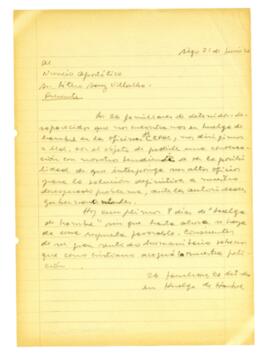 Stgo 21 de junio
Al
Nuncio Apostólico
Sr. Sótero Sanz Villalba.
Presente
Los 26 familiares de detenidos desa-
parecidos que nos encontramos en huelga de
hambre en la oficina CEPAL, nos dirigimos
a Ud. con el objeto de pedirle una conversa-
ción con nosotros tendiente a la posibi-
lidad de que interponga sus altos oficios
para la solución definitiva a nuestro
desesperado problema, ante las autoridades
gubernamentales.
Hoy cumplimos 8 días de "huelga
de hambre" sin que hasta ahora se haya
dado una respuesta favorable. Conscientes
de su gran sentido humanitario sabemos
que como cristiano acogerá nuestra peti-
ción.
26 familiares de det. des.
en Huelga de Hambre